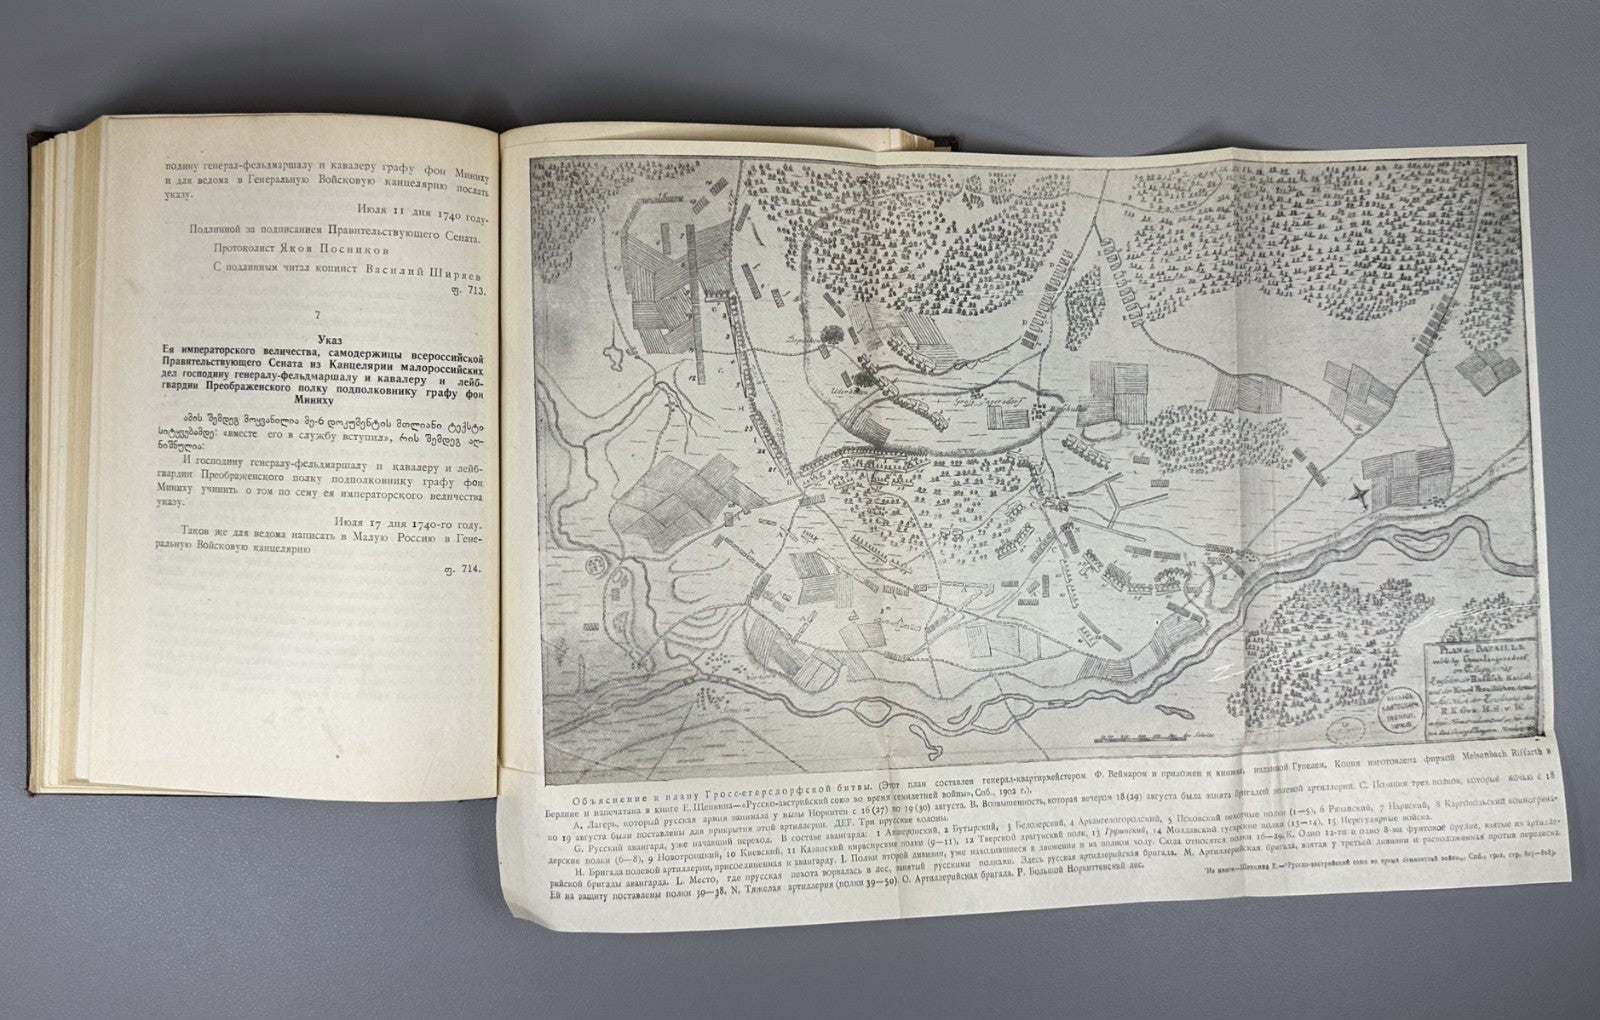 подину генерал-фельдмаршалу и кавалеру графу фон Миниху
и для ведома в Генеральную Войсковую канцелярию послать
указу.
Июля 11 дня 1740 году.
Подлинной за подписанием Правительствующего Сената.
Протоколист Яков Посников
С подлинным читал копиист Василий Ширяев
ფ. 713.
7
Указ
Ея императорского величества, самодержицы всероссийской
Правительствующего Сената из Канцелярии малороссийских
дел господину генералу-фельдмаршалу и кавалеру и лейб-
гвардии Преображенского полку подполковнику графу фон
Миниху
ამის შემდეგ მოყვანილია მე-6 დოკუმენტის მთლიანი ტექსტი
სიტყვებამდე: «вместе его в службу вступил», რის შემდეგ აღ-
ნიშნულია:
И господину генералу-фельдмаршалу и кавалеру и лейб-
гвардии Преображенского полку подполковнику графу фон
Миниху учинить о том по сему ея императорского величества
указу.
Июля 17 дня 1740-го году.
Таков же для ведома написать в Малую Россию в Гене-
ральную Войсковую канцелярию
ფ. 714.
Gross Jagersdorf
PLAN der BATAILLE
Объяснение к плану Гросс-егерсдорфской битвы. (Этот план составлен генерал-квартирмейстером Ф. Веймарном и приложен к книжке, изданной Гупелем. Копия изготовлена фирмой Meisenbach Riffarth в
Берлине и напечатана в книге Е. Щепкина—«Русско-австрийский союз во время семилетней войны», Спб., 1902 г.).
А. Лагерь, который русская армия занимала у кызы Норкитен с 16 (27) по 19 (30) августа. В. Возвышенность, которая вечером 18 (29) августа была занята бригадой полевой артиллерии. С. Позиция трех полков, которые ночью с 18
по 19 августа были поставлены для прикрытия этой артиллерии. ДЕF. Три прусские колоны.
G. Русский авангард, уже начавший переход. В составе авангарда: 1 Апшеронский, 2 Бутырский, 3 Белозерский, 4 Архангелогородский, 5 Псковский пехотные полки (1—5), 6 Рязанский, 7 Нарвский, 8 Каргопольский конногрена-
дерские полки (6—8), 9 Новотроицкий, 10 Киевский, 11 Казанский кирасирские полки (9—11), 12 Тверской драгунский полк, 13 Грузинский, 14 Молдавский гусарские полки (13—14), 15 Нерегулярные войска.
H. Бригада полевой артиллерии, присоединенная к авангарду. I. Полки второй дивизии, уже находившиеся в движении и на полном ходу. Сюда относятся полки 16—29. K. Одно 12-ти и одно 8-ми фунтовое орудие, взятые из артилле-
рийской бригады авангарда. L. Место, где прусская пехота ворвалась в лес, занятый русскими полками. Здесь русская артиллерийская бригада. M. Артиллерийская бригада, взятая у третьей дивизии и расположенная против перелеска.
Ей на защиту поставлены полки 30—38, N. Тяжелая артиллерия (полки 39—50). O. Артиллерийская бригада. P. Большой Норкиттенский лес.
Из книги—Щепкина Е.—«Русско-австрийский союз во время семилетней войны», Спб., 1902,